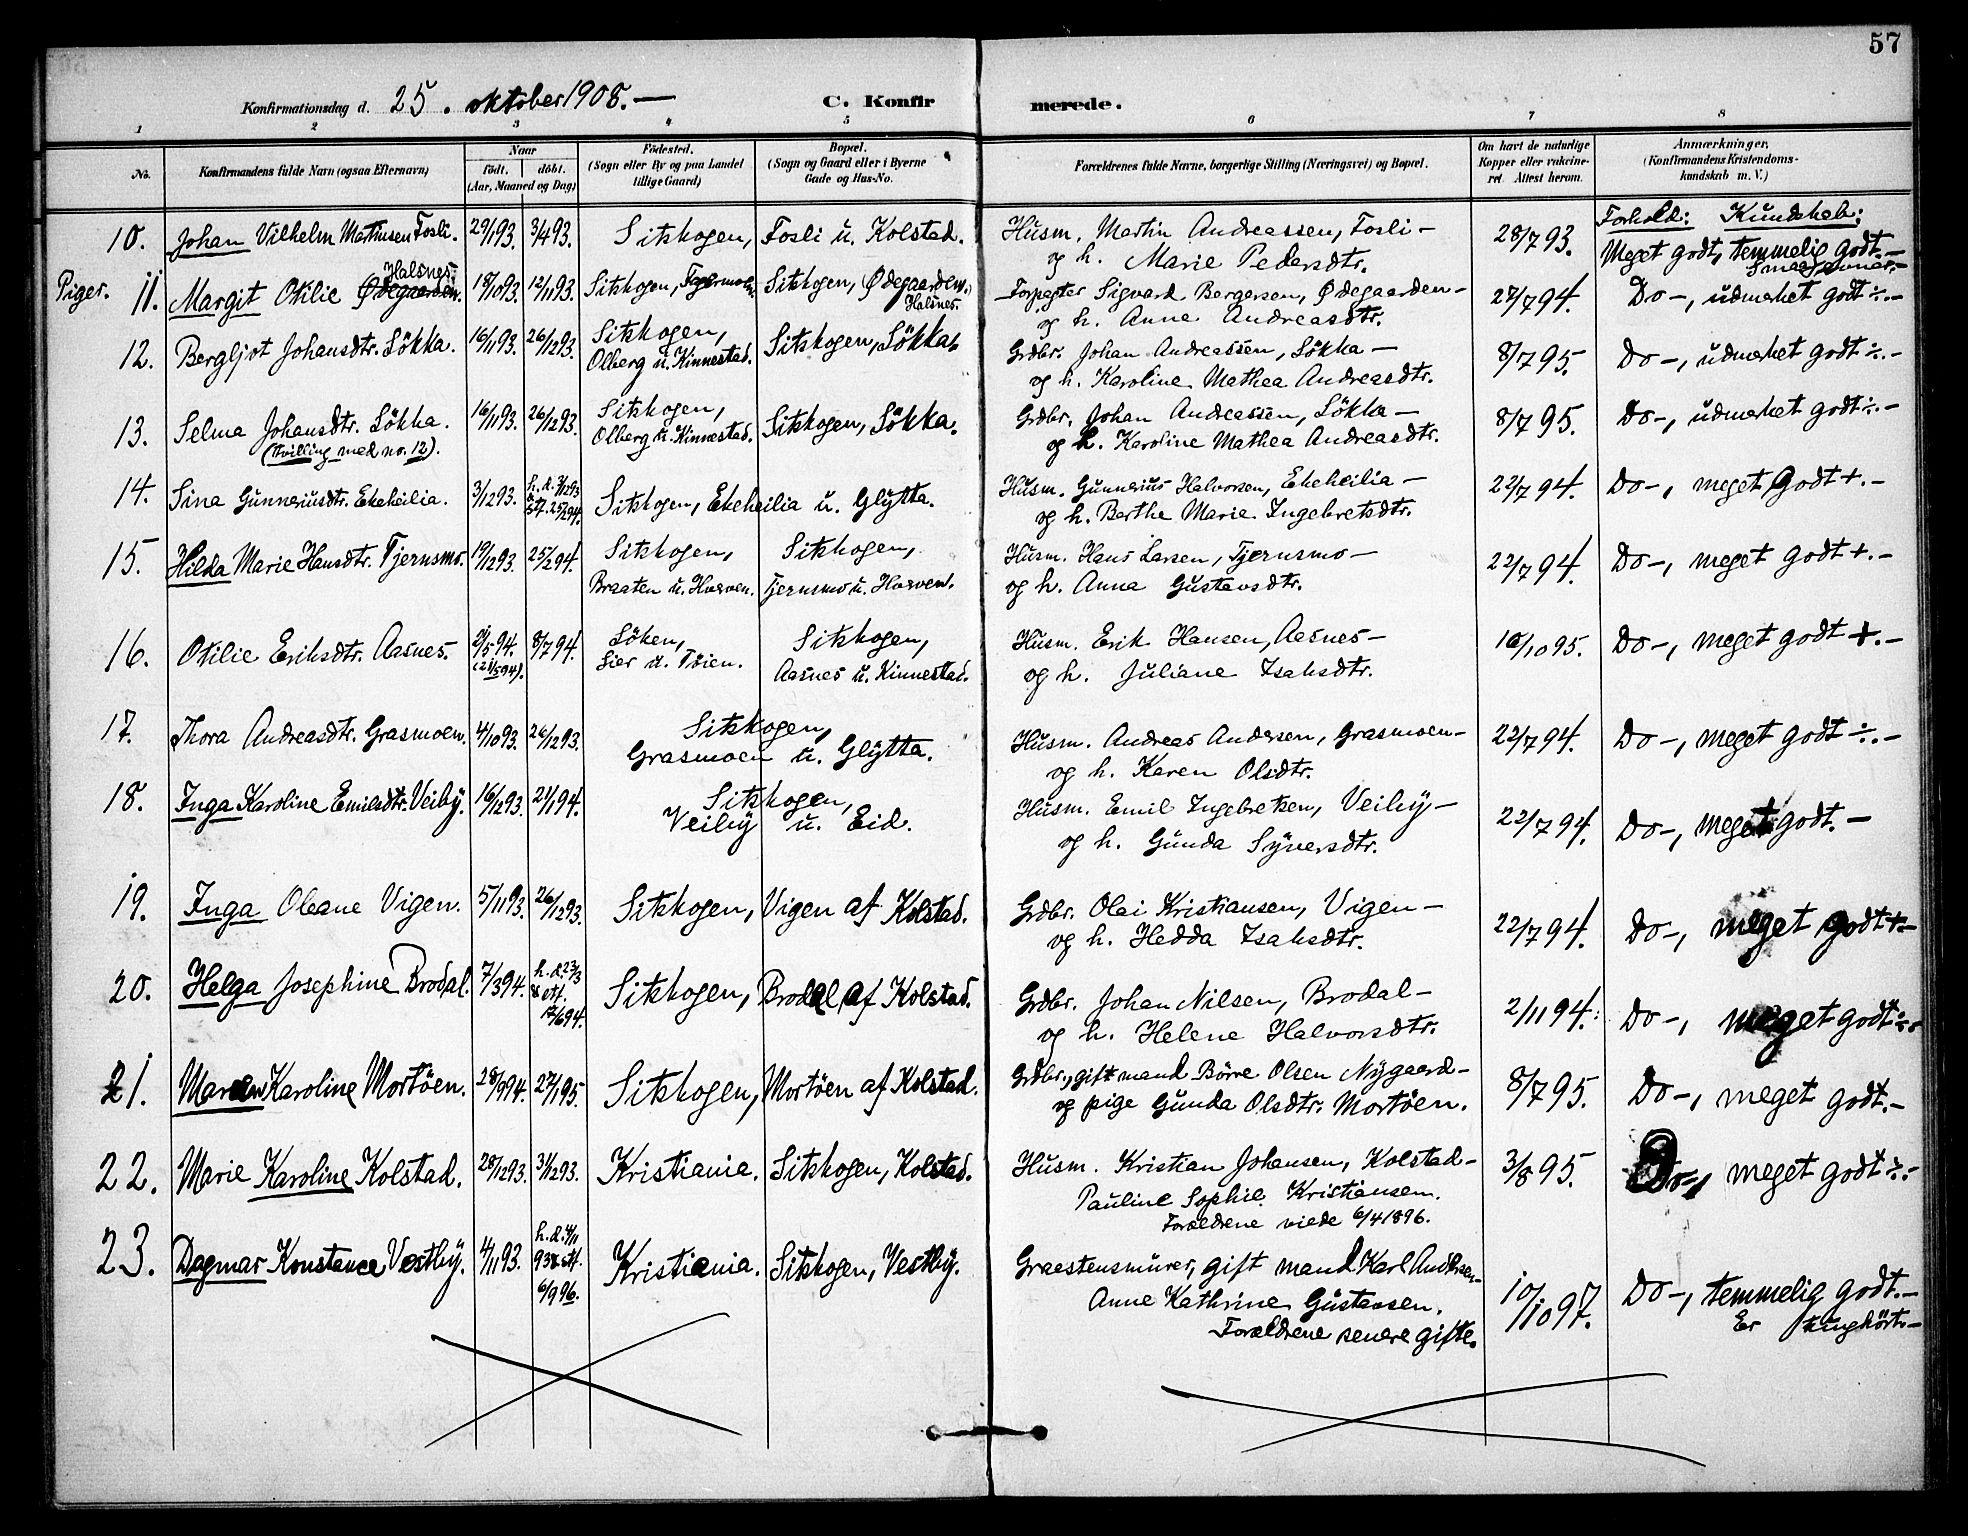 57
Konfirmationsdag d. 25. oktober 1908.— C. Konfirmerede.
1 2 3 4 5 6 7 8
No.
Konfirmandens fulde Navn (ogsaa Efternavn)
Naar
födt. döbt.
(Aar, Maaned og Dag)
Födested.
(Sogn eller By og paa Landet
tillige Gaard)
Bopæl.
(Sogn og Gaard eller i Byerne
Gade og Hus-No.
Forældrenes fulde Navne, borgerlige Stilling (Næringsvei) og Bopæl.
Om havt de naturlige
Kopper eller vakcine-
ret. Attest herom.
Anmærkninger,
(Konfirmandens Kristendoms-
kundskab m. V.)
Forhold: Kundskab:
10. Johan Vilhelm Martinsen Fosli. 29/1 93. 3/4 93. Sitskogen, Fosli u. Kolstad. Husm. Martin Andreassen, Fosli – 28/7 93. Meget godt, temmelig godt.–
og h. Marie Pedersdtr.
Piger. 11. Margit Otilie Ødegaarden. Halsnes. 18/10 93. 12/11 93. Sitskogen, Sitskogen, Ødegaarden. Forpagter Sigvard Bergersen, Ødegaarden – 27/7 94. Do–, udmerket godt ÷.–
Halsnes. og h. Anne Andreasdtr.
12. Bergljot Johansdtr. Løkka. 16/11 93. 26/12 93. Sitskogen, Sitskogen, Løkka. Grdbr. Johan Andreassen, Løkka – 8/7 95. Do–, udmerket godt ÷.–
Olberg u. Kinnestad. og h. Karoline Mathea Andreasdtr.
13. Selma Johansdtr. Løkka. 16/11 93. 26/12 93. Sitskogen, Sitskogen, Løkka. Grdbr. Johan Andreassen, Løkka – 8/7 95. Do–, udmerket godt ÷.–
(Tvilling med no. 12). Olberg u. Kinnestad. og h. Karoline Mathea Andreasdtr.
14. Sina Gunneriusdtr. Ekeheilia. 3/12 93. h.d. 3/12 93 & stf. 25/2 94. Sitskogen, Ekeheilia u. Glytta. Husm. Gunnerius Halvorsen, Ekeheilia – 22/7 94. Do–, meget godt +.–
og h. Berthe Marie Ingebretsdtr.
15. Hilda Marie Hansdtr. Tjernsmo. 19/12 93. 25/2 94. Sitskogen, Sitskogen, Husm. Hans Larsen, Tjernsmo – 22/7 94. Do–, meget godt +.–
Braaten u. Horven. Tjernsmo u. Horven. og h. Anna Gustavsdtr.
16. Otilie Eriksdtr. Aasnes. 2/5 94. (21/5 94). 8/7 94. Løken, Sitskogen, Husm. Erik Hansen, Aasnes – 16/10 95. Do–, meget godt +.–
Lier u. Töien. Aasnes u. Kinnestad. og h. Juliane Isaksdtr.
17. Thora Andreasdtr. Grasmoen. 4/10 93. 26/12 93. Sitskogen, Husm. Andreas Andersen, Grasmoen – 22/7 94. Do–, meget godt ÷.–
Grasmoen u. Glytta. og h. Karen Olsdtr.
18. Inga Karoline Emilsdtr. Veiby. 16/12 93. 21/1 94. Sitskogen, Husm. Emil Ingebretsen, Veiby – 22/7 94. Do–, meget godt.–
Veiby u. Eid. og h. Gunda Syversdtr.
19. Inga Oleane Vigen. 5/11 93. 26/12 93. Sitskogen, Vigen af Kolstad. Grdbr. Olai Kristiansen, Vigen – 22/7 94. Do–, meget godt +–
og h. Hedda Isaksdtr.
20. Helga Josephine Brodal. 7/3 94. h.d. 23/3 & stf. 17/6 94. Sitskogen, Brodal af Kolstad. Grdbr. Johan Nilsen, Brodal – 2/11 94. Do–, meget godt ÷.–
og h. Helene Halvorsdtr.
21. Maren Karoline Mortøen. 28/9 94. 27/1 95. Sitskogen, Mortøen af Kolstad. Grdbr., gift mand Börre Olsen Nygaard – 8/7 95. Do–, meget godt.–
og pige Gunda Olsdtr. Mortøen.
22. Marie Karoline Kolstad. 28/12 93. 31/12 93. Kristiania. Sitskogen, Kolstad. Husm. Kristian Johansen, Kolstad – 3/8 95. Do–, meget godt ÷.–
Pauline Sophie Kristiansen.
Forældrene viede 6/4 1896.
23. Dagmar Konstance Vestby. 4/11 93. h.d. 4/11 93 & stf. 6/9 96. Kristiania. Sitskogen, Vestby. Graastensmurer, gift mand Karl Andersen – 10/10 97. Do–, temmelig godt.–
Anne Kathrine Gustavsen. Er tunghört.–
Forældrene senere gifte.